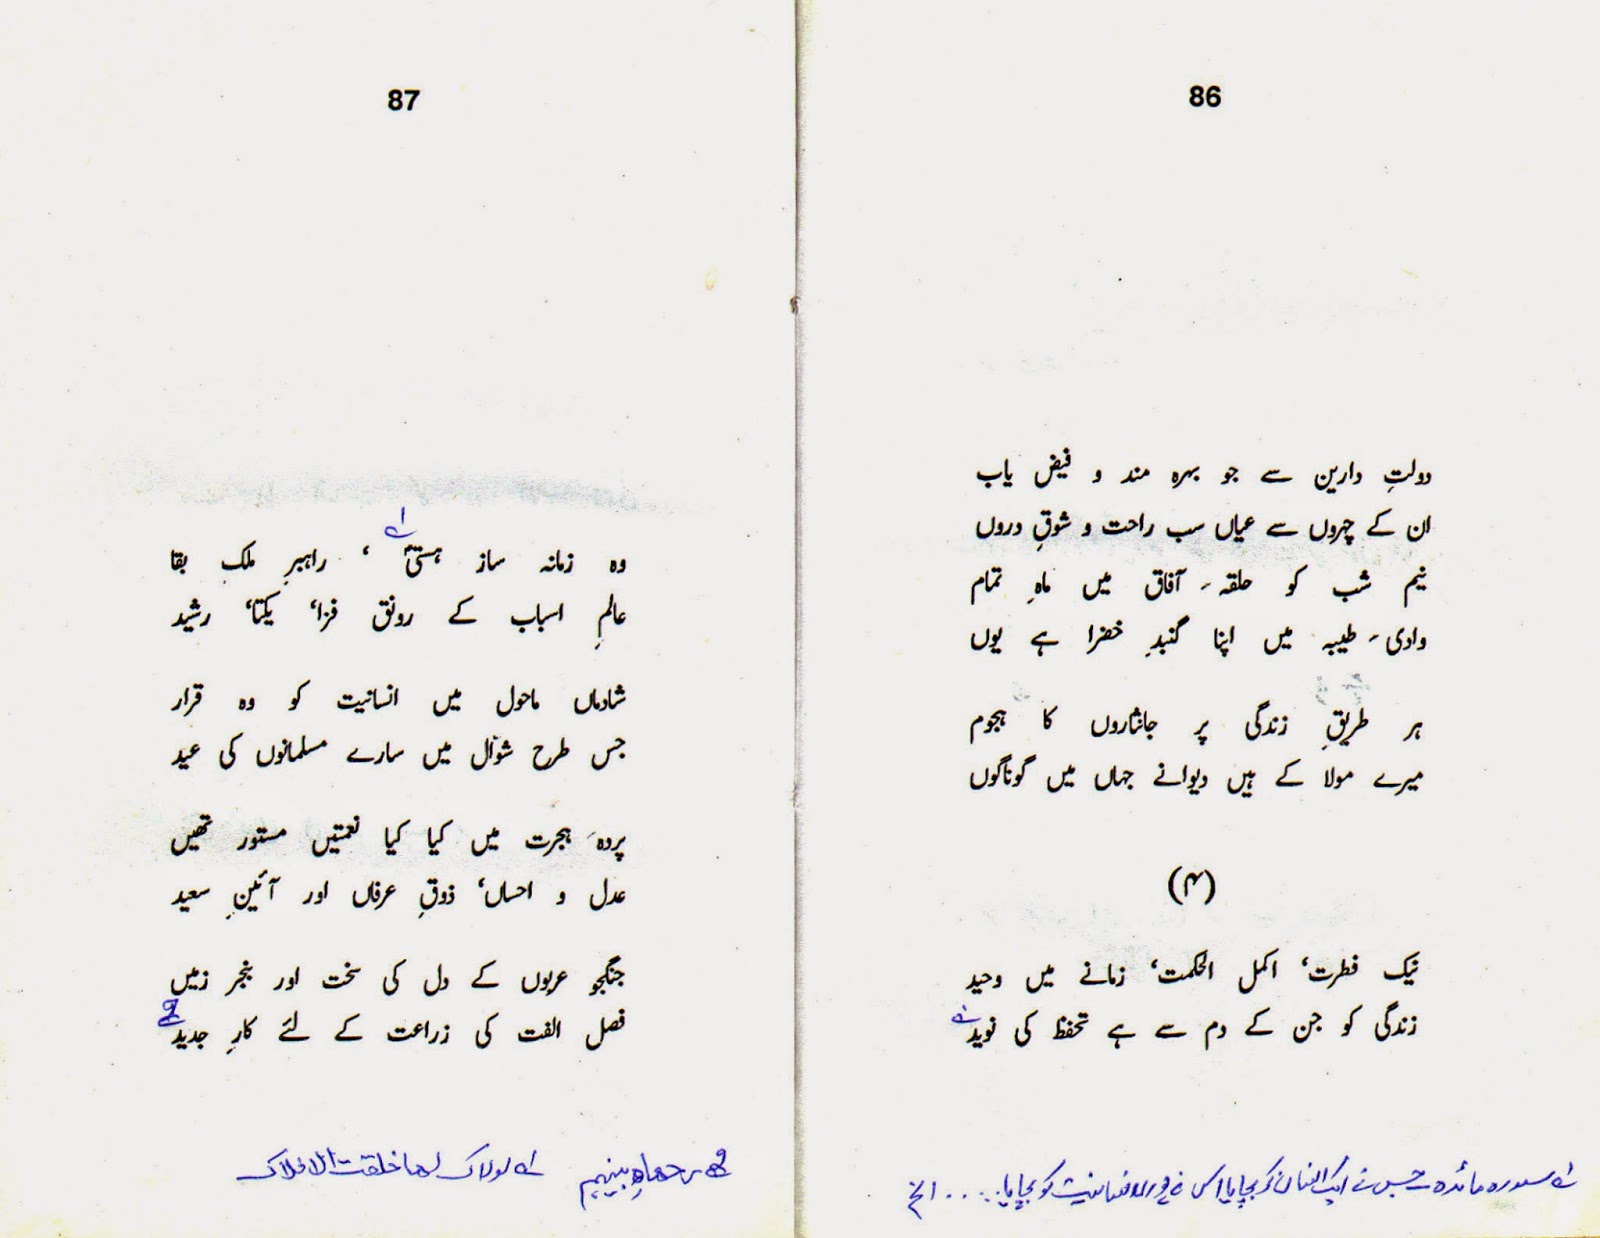 86
دولتِ دارین سے جو بہرہ مند و فیض یاب
ان کے چہروں سے عیاں سب راحت و شوقِ دروں
نیم شب کو حلقہ ٔ آفاق میں ماہِ تمام
وادی ٔ طیبہ میں اپنا گنبدِ خضرا ہے یوں
ہر طریقِ زندگی پر جانثاروں کا ہجوم
میرے مولا کے ہیں دیوانے جہاں میں گوناگوں
(۴)
نیک فطرت‘ اکمل الحکمت‘ زمانے میں وحید
زندگی کو جن کے دم سے ہے تحفظ کی نوید ۱ے
۱ے سورہ مائدہ جس نے ایک انسان کو بچایا اس نے پوری انسانیت کو بچایا..... الخ
87
وہ زمانہ ساز ہستیؐ ۱ے ‘ راہبرِ ملک بقا
عالمِ اسباب کے رونق فزا‘ یکتا‘ رشید
شادماں ماحول میں انسانیت کو وہ قرار
جس طرح شوّال میں سارے مسلمانوں کی عید
پردہ ٔ ہجرت میں کیا کیا نعمتیں مستور تھیں
عدل و احساں‘ ذوقِ عرفاں اور آئینِ سعید
جنگجو عربوں کے دل کی سخت اور بنجر زمیں
فصل الفت کی زراعت کے لئے کارِ جدید ۲ے
۱ے لولاک لما خلقت الافلاک
۲ے رحماء بینہم